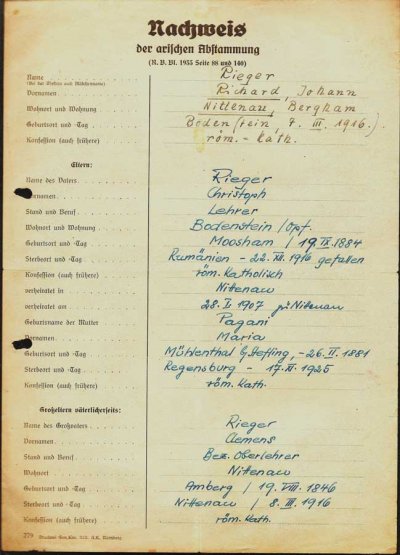 Nachweis
der arischen Abstammung
(R. B. Bl. 1935 Seite 88 und 146)
Name Rieger
(Bei der Ehefrau auch Mädchenname)
Vornamen Richard, Johann
Wohnort und Wohnung Nittenau, Bergham
Geburtsort und -Tag Bodenstein, 7. III. 1916.)
Konfession (auch frühere) röm.- kath.
Eltern:
Name des Vaters Rieger
Vornamen Christoph
Stand und Beruf Lehrer
Wohnort und Wohnung Bodenstein / Opf.
Geburtsort und -Tag Moosham / 19. IX. 1884
Sterbeort und -Tag Rumänien - 22. XII. 1916 gefallen
Konfession (auch frühere) röm. katholisch
verheiratet in Nittenau
verheiratet am 28. I. 1907 zu Nittenau
Geburtsname der Mutter Pagani
Vornamen Maria
Geburtsort und -Tag Mühlenthal b/Hefling, - 26. II. 1881
Sterbeort und -Tag Regensburg - 17. XI. 1925
Konfession (auch frühere) röm. kath.
Großeltern väterlicherseits:
Name des Großvaters Rieger
Vornamen Clemens
Stand und Beruf Bez. Oberlehrer
Wohnort Nittenau
Geburtsort und -Tag Amberg / 19. VIII. 1846
Sterbeort und -Tag Nittenau / 8. III. 1916
Konfession (auch frühere) röm. kath.
279